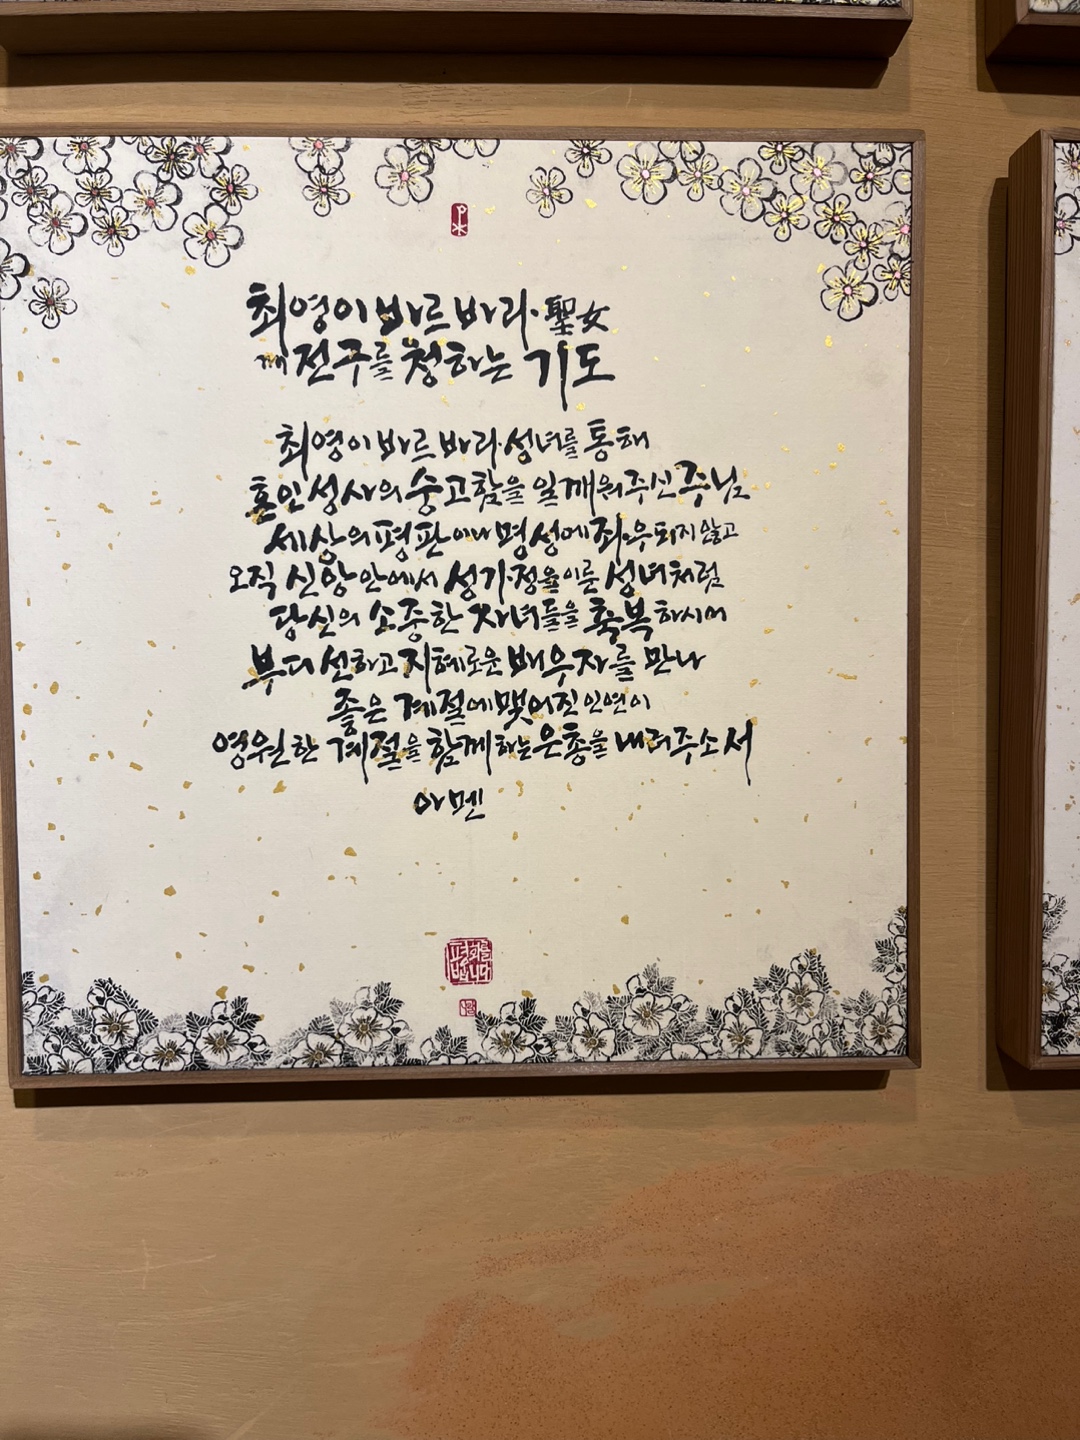 최영이 바르바라 聖女
께 전구를 청하는 기도
최영이 바르바라 성녀를 통해
혼인성사의 숭고함을 일깨워주신 주님
세상의 평판이나 명성에 좌우되지 않고
오직 신앙 안에서 성가정을 이룬 성녀처럼
당신의 소중한 자녀들을 축복하시며
부디 선하고 지혜로운 배우자를 만나
좋은 계절에 맺어진 인연이
영원한 계절을 함께하는 은총을 내려주소서
아멘